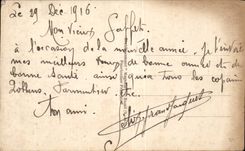 Le 29 Déc 1916
Mon Vieux Gaffet
à l'occasion de la nouvelle année. Je t'envoie
mes meilleurs de bonne amitié et de
bonne santé, ainsi qu'à tous les copains
Parmentier, etc.
Ton ami.